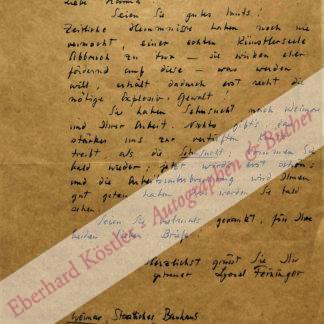 Liebe Hanna!
Seien Sie gutes Muts!
Zeitliche Hemmnisse haben noch nie
vermocht, einer echten Künstlerseele
Abbruch zu tun — sie wirken eher
fördernd auf diese — was werden
will, erhält dadurch erst recht die
nötige Explosiv-Gewalt!
Sie haben Sehnsucht nach Weimar
und Ihrer Arbeit. Nichts gibt's, das
stärker uns zur
treibt als die Sehnsucht. Kommen Sie
bald wieder; jetzt
und die Arbeitsunterbrechung wird Ihnen
gut getan haben, das werden Sie bald
sehen.
Seien Sie bedankt, für Ihre
beiden lieben Briefe!
Herzlichst grüsst Sie Ihr
getreuer Lyonel Feininger
Weimar, Staatliches Bauhaus
Eberhard Köstler - Autographen & Bücher